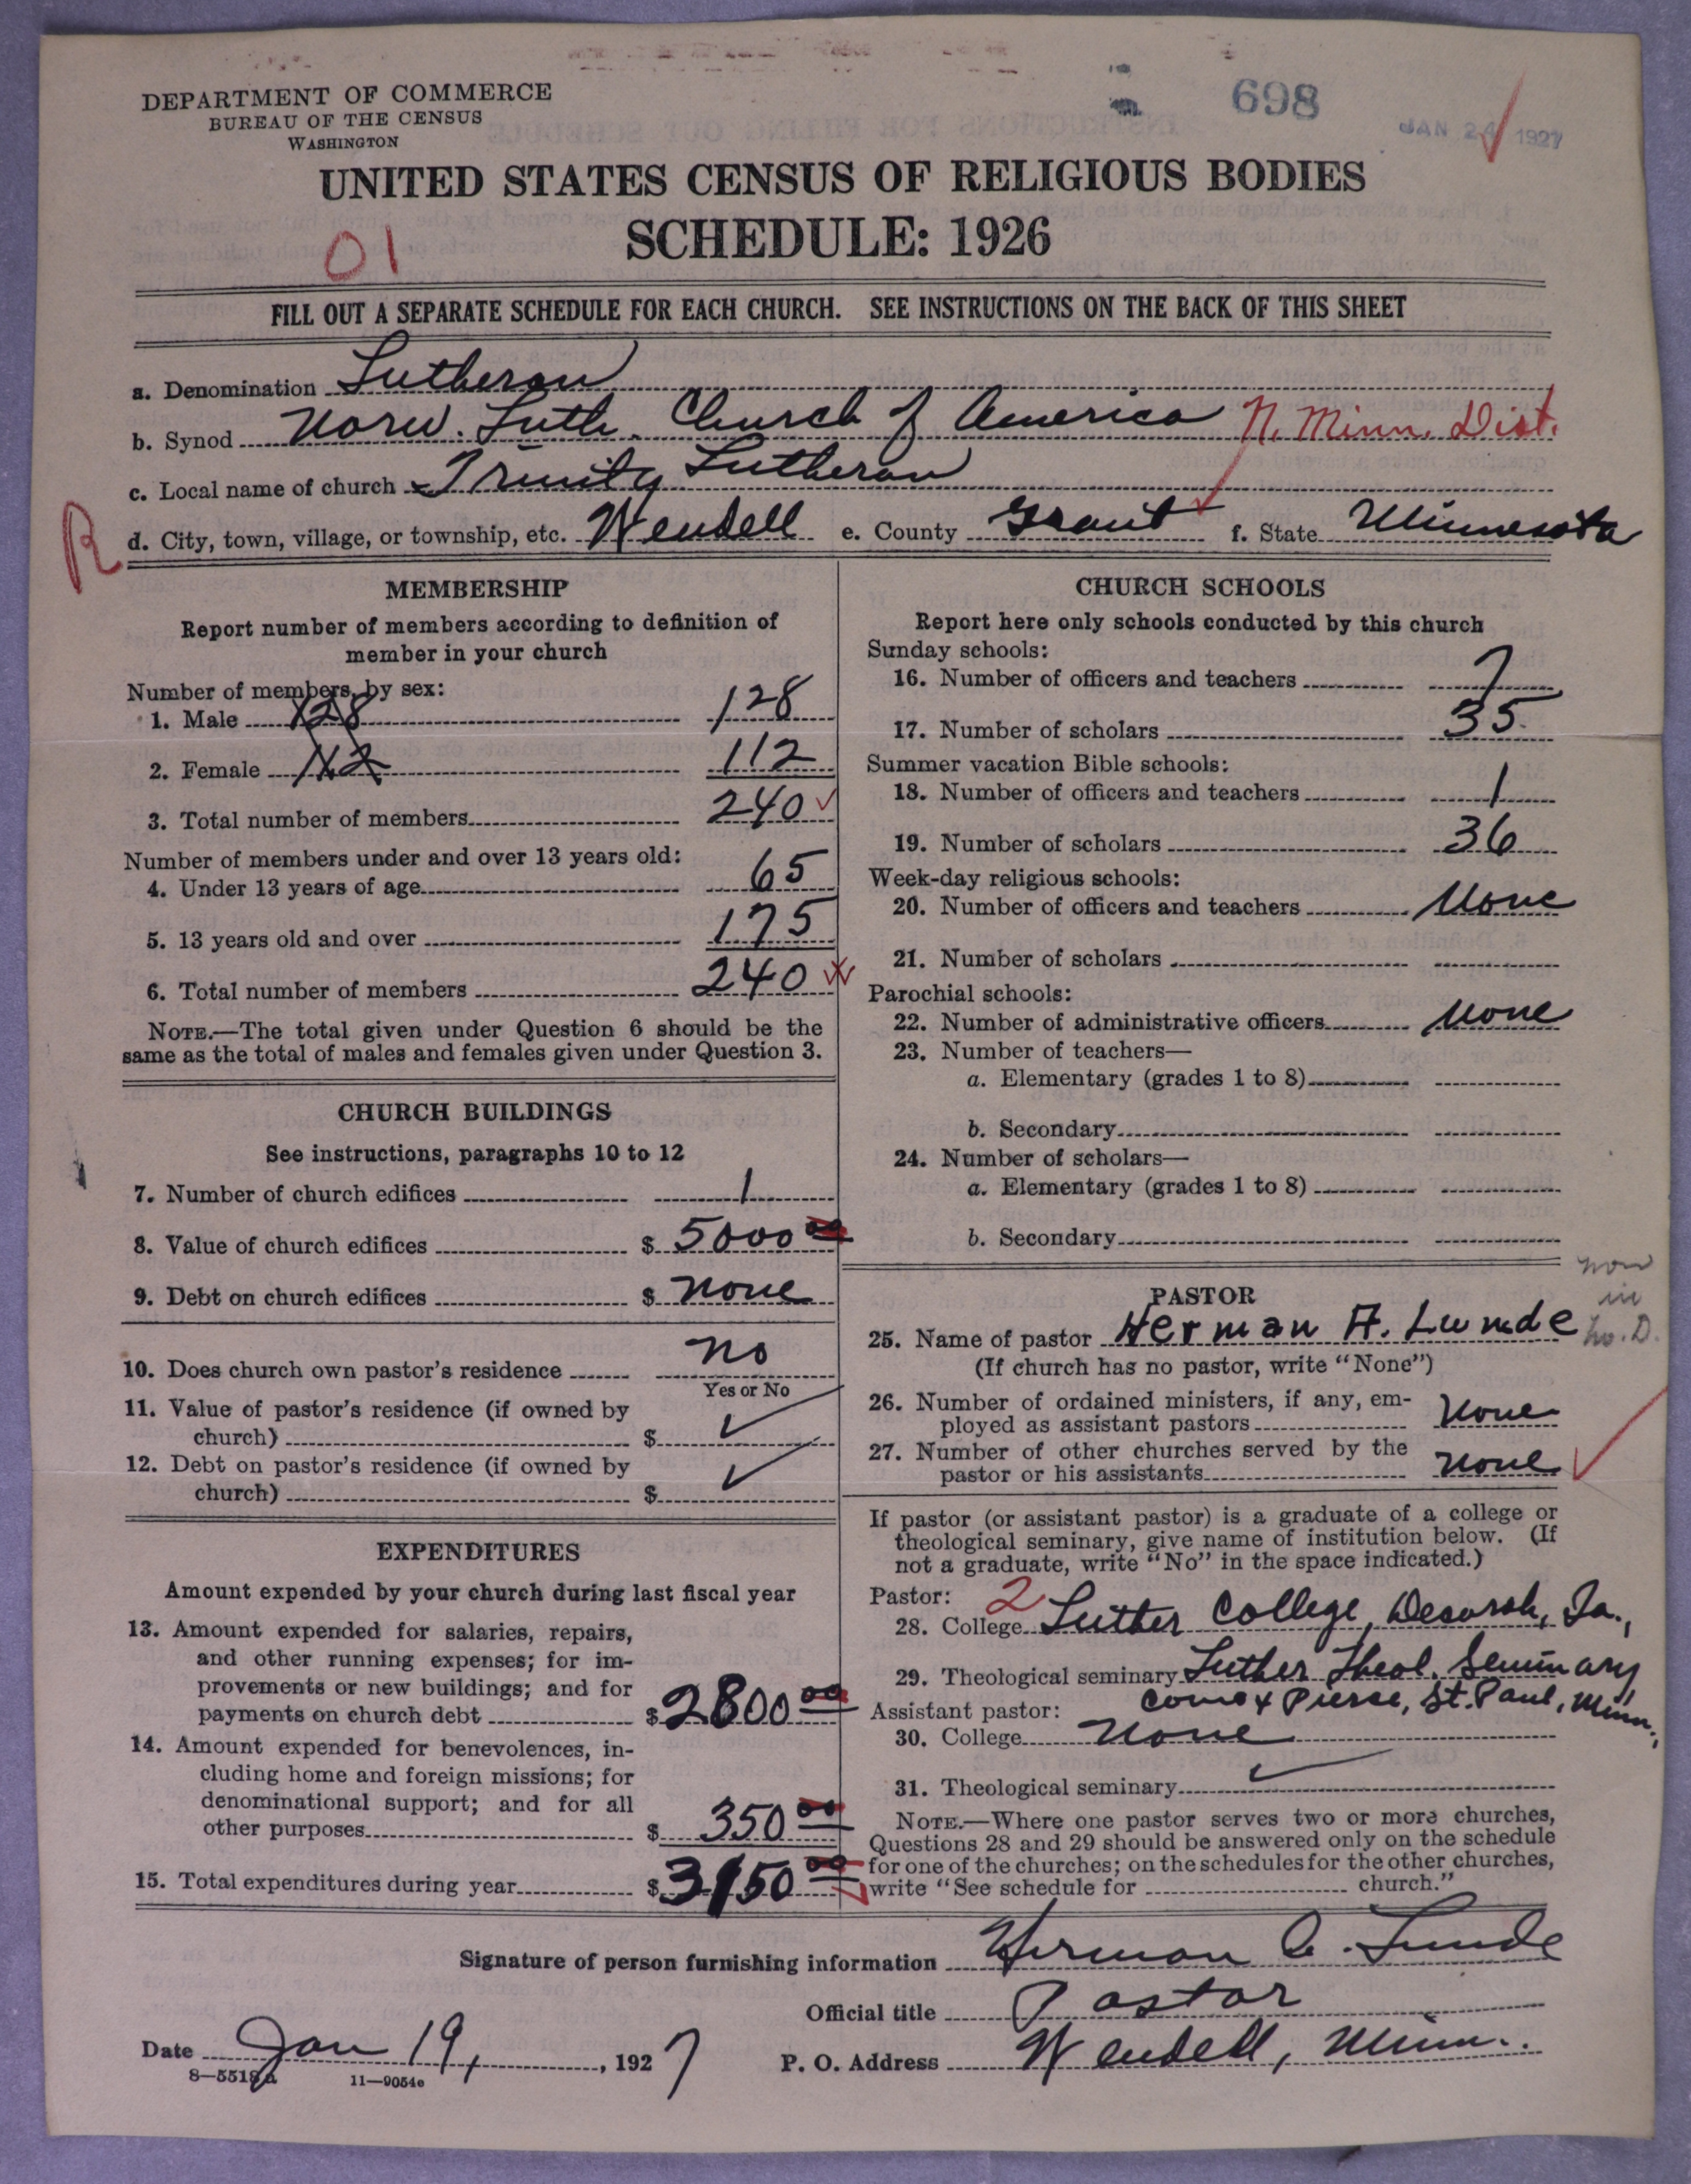 DEPARTMENT OF COMMERCE
BUREAU OF THE CENSUS
WASHINGTON
698
JAN 24 1927
UNITED STATES CENSUS OF RELIGIOUS BODIES
SCHEDULE: 1926
01
FILL OUT A SEPARATE SCHEDULE FOR EACH CHURCH. SEE INSTRUCTIONS ON THE BACK OF THIS SHEET
a. Denomination Lutheran
b. Synod Norw. Luth. Church of America N. Minn. Dist.
c. Local name of church Trinity Lutheran
R
d. City, town, village, or township, etc. Wendell e. County Grant f. State Minnesota
MEMBERSHIP
Report number of members according to definition of
member in your church
Number of members, by sex:
1. Male 128 128
2. Female 112 112
3. Total number of members 240
Number of members under and over 13 years old:
4. Under 13 years of age 65
5. 13 years old and over 175
6. Total number of members 240
NOTE.—The total given under Question 6 should be the
same as the total of males and females given under Question 3.
CHURCH BUILDINGS
See instructions, paragraphs 10 to 12
7. Number of church edifices 1
8. Value of church edifices $ 5000 00
9. Debt on church edifices $ none
10. Does church own pastor's residence no
Yes or No
11. Value of pastor's residence (if owned by
church) $ ✓
12. Debt on pastor's residence (if owned by
church) $ ✓
EXPENDITURES
Amount expended by your church during last fiscal year
13. Amount expended for salaries, repairs,
and other running expenses; for im-
provements or new buildings; and for
payments on church debt $ 2800 00
14. Amount expended for benevolences, in-
cluding home and foreign missions; for
denominational support; and for all
other purposes $ 350 00
15. Total expenditures during year $ 3150 00
CHURCH SCHOOLS
Report here only schools conducted by this church
Sunday schools:
16. Number of officers and teachers 7
17. Number of scholars 35
Summer vacation Bible schools:
18. Number of officers and teachers 1
19. Number of scholars 36
Week-day religious schools:
20. Number of officers and teachers None
21. Number of scholars
Parochial schools:
22. Number of administrative officers None
23. Number of teachers—
a. Elementary (grades 1 to 8)
b. Secondary
24. Number of scholars—
a. Elementary (grades 1 to 8)
b. Secondary
PASTOR
now
in
no. D.
25. Name of pastor Herman A. Lunde
(If church has no pastor, write "None")
26. Number of ordained ministers, if any, em-
ployed as assistant pastors None
27. Number of other churches served by the
pastor or his assistants None
If pastor (or assistant pastor) is a graduate of a college or
theological seminary, give name of institution below. (If
not a graduate, write "No" in the space indicated.)
Pastor: 2
28. College Luther College, Decorah, Ia.,
29. Theological seminary Luther Theol. Seminary
Como & Pierce, St. Paul, Minn.,
Assistant pastor:
30. College None
31. Theological seminary ✓
NOTE.—Where one pastor serves two or more churches,
Questions 28 and 29 should be answered only on the schedule
for one of the churches; on the schedules for the other churches,
write "See schedule for church."
Signature of person furnishing information Herman A. Lunde
Official title Pastor
Date Jan 19, , 1927
P. O. Address Wendell, Minn.
8—5518a 11—9054e